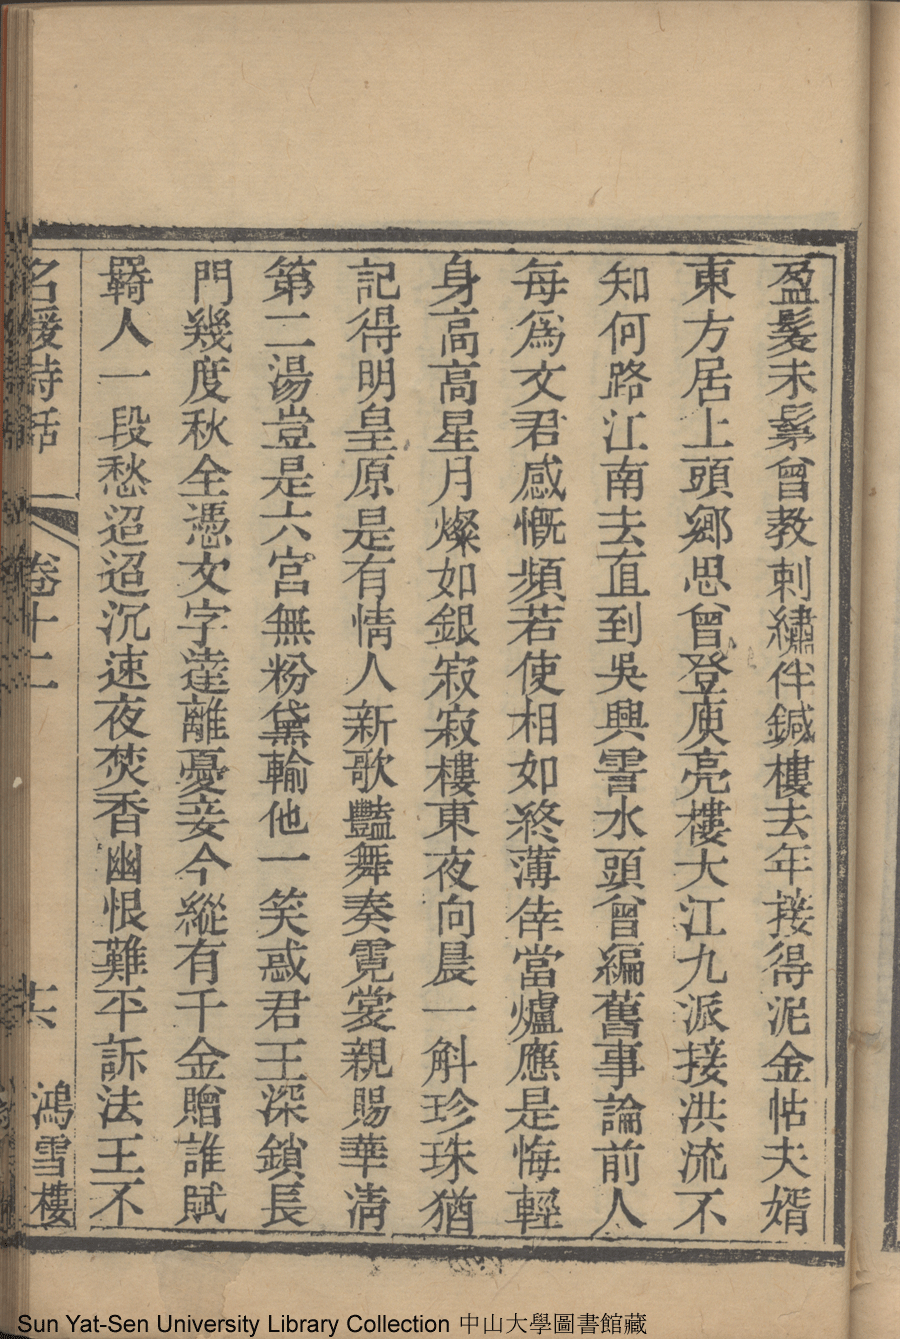 盈髮未鬖曾教刺繡伴鍼樓去年接得泥金帖夫婿
東方居上頭鄉思曾登庾亮樓大江九派接洪流不
知何路江南去直到吳興霅水頭曾編舊事論前人
每爲文君感慨頻若使相如終薄倖當爐應是悔輕
身高高星月燦如銀寂寂樓東夜向晨一斛珍珠猶
記得明皇原是有情人新歌豔舞奏霓裳親賜華清
第二湯豈是六宮無粉黛輸他一笑惑君王深鎖長
門幾度秋全憑文字達離憂妾今縱有千金贈誰賦
羇人一段愁迢迢沉速夜焚香幽恨難平訴法王不
名媛詩話 卷十二 十六 鴻雪樓
Sun Yat-Sen University Library Collection 中山大學圖書館藏